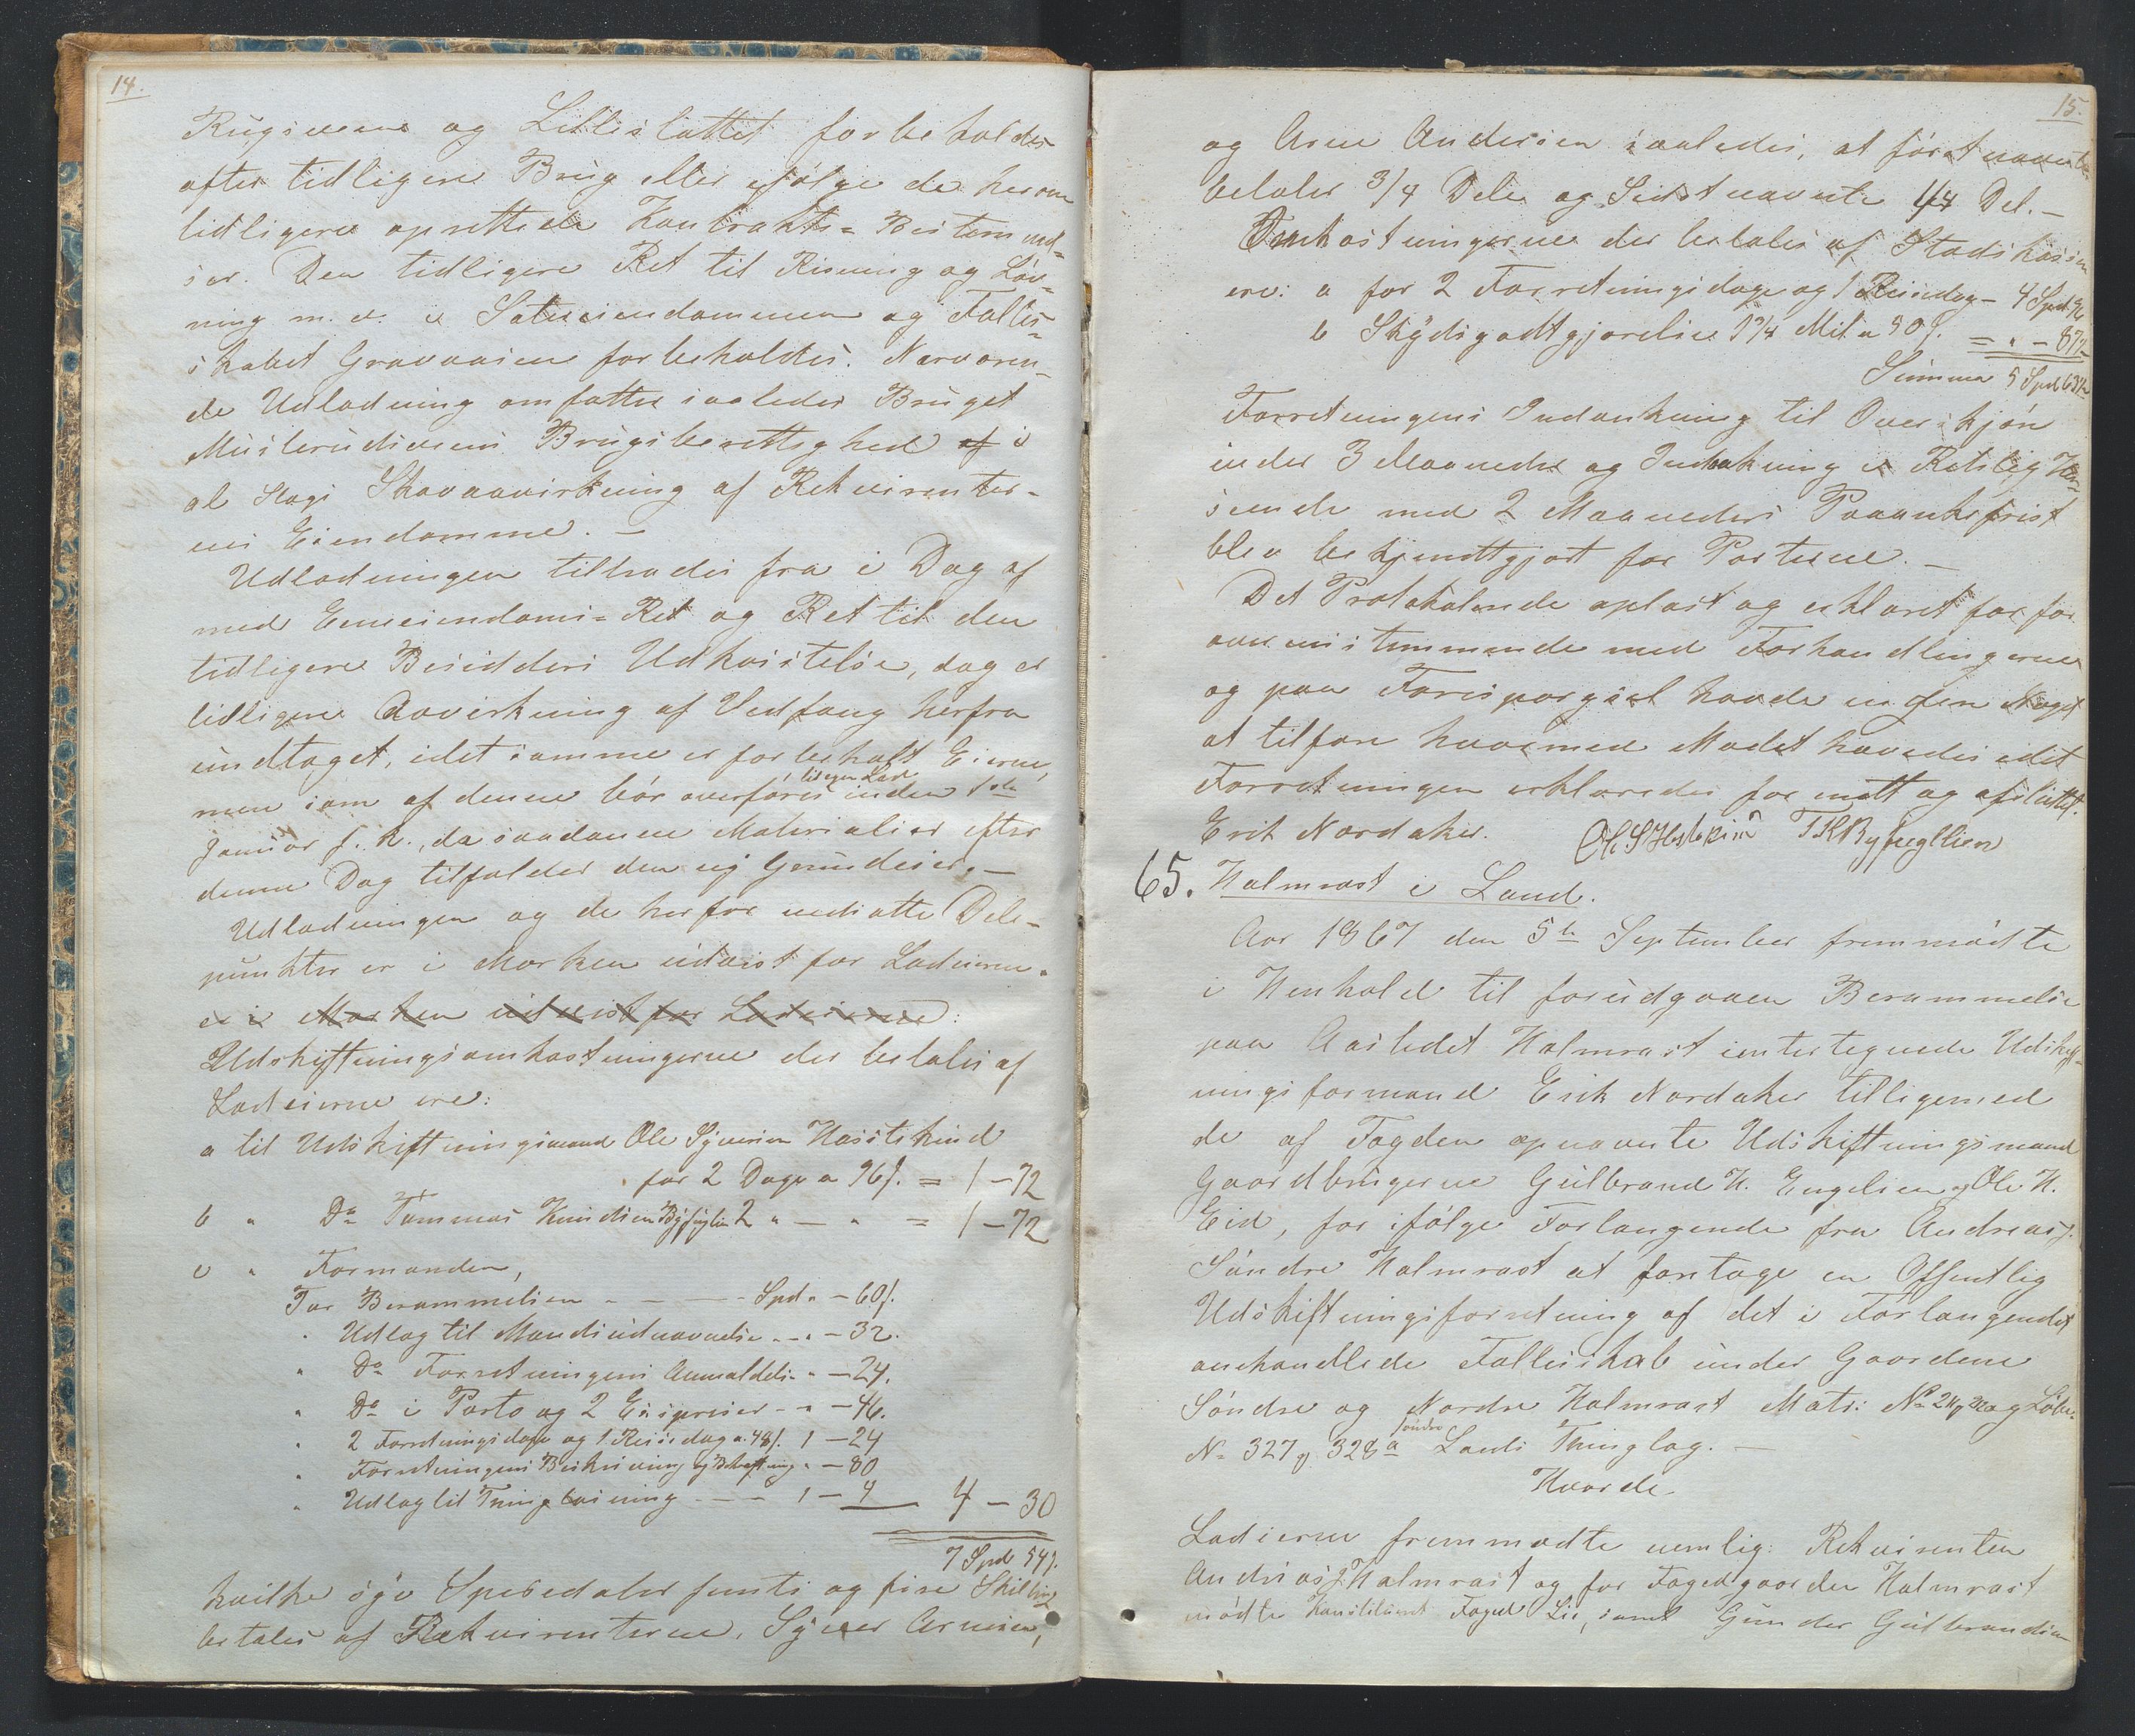 14.
Rugsveene og Lilleslattet forbeholdes
efter tidligere Brug eller ifølge de herom
tidligere oprettede Kontrakts= Bestemmel=
ser. Den tidligere Ret til Risning og Løv=
ning m. v. i Sætereiendommen og Fælles=
skabet Gravaasen forbeholdes. Nærværen=
de Udlodning omfatter saaledes Bruget
Brugsberettighed af i
al Slags Skovaavirkning af Rekvirenter=
nes Eiendomme. —
Udlodningen tiltrædes fra i Dag af
med Eneeiendoms=Ret og Ret til den
tidligere Besidders Udkvistelse, dog er
tidligere Aavirkning af Vedfang herfra
undtaget, idet samme er forbeholdt Eierne,
men som af denne bør overføres til egen Lod inden 1ste
Januar f. k., da saadanne Materialier efter
denne Dag tilfalder den ny Grundeier. —
Udlodningen og de herfor nedsatte Dele=
punkter er i Marken udvist for Lodeierne.
er i Marken udvist for Lodeierne:
Udskiftningsomkostningerne der betales af
Lodeierne ere:
a til Udskiftningsmand Ole Syversen Hasstskind
for 2 Dage a 96 s. = 1 – 72
b " Do Tommas Knudsen Byfuglien 2 " — " = 1 – 72
c " Formanden,
For Berammelsen - — — - Spd. " – 60 s.
" Udlag til Mandsudnævnelse - - " – 32.
" Do Forretningens Anmældelse - " – 24.
" Do i Porto og 2 Exspresser - " – 46.
" 2 Forretningsdage og 1 Reisedag a 48 s. 1 – 24
" Forretningens Beskrivning og Behæftning " – 80
" Udlag til Tinglæsning — — - 1 – 4 — 4 – 30
7 Spd 54 s.
hvilke syv Speciedaler femti og fire Skilling
betales af Rekvirenterne, Syver Arnesen,
15.
og Arne Andersen saaledes, at førstnævnte
betaler 3/4 Dele og Sidstnævnte 1/4 Del. —
Omkostningerne der betales af Stadskassen
ere: a for 2 Forretningsdage og 1 Reisedag – 4 Spd 96
b Skydsgodtgjørelse 1 3/4 Mil a 50 s. = " – 87½
Summa 5 Spd 63½
Forretningens Indankning til Overskjøn
inden 3 Maaneder og Indankning i Retslig Hen=
seende med 2 Maaneders Paaankefrist
blev bekjendtgjort for Parterne. —
Det Protokolerede oplæst og erklæret for for
overensstemmende med Forhandlingerne
og paa Forespørgsel havde ingen Noget
at tilføre hvormed Mødet hævedes idet
Forretningen erklæredes for endt og afsluttet.
Erik Nordaker. Ole S Hasteskin T K Byfugllien
65. Halmrast i Land.
Aar 1867 den 5te September fremmødte
i Henhold til forudgaaen Berammelse
paa Aastedet Halmrast undertegnede Udskift=
ningsformand Erik Nordaker tilligemed
de af Fogden opnævnte Udskiftningsmænd
Gaardbrugerne Gulbrand H. Engelien og Ole H.
Eid, for ifølge Forlangende fra Andreas J.
Søndre Halmrast at foretage en Offentlig
Udskiftningsforretning af det i Forlangendet
omhandlede Fællesskab under Gaardene
Søndre og Nordre Halmrast Matr: No 24 og Løbe=
No 327 og 328a søndre Lands Thinglag. —
Hvorde
Lodeierne fremmødte nemlig: Rekvirenten
Andreas J. Halmrast og for Fogedgaarden Halmrast
mødte Konstitueret Foged Lie, samt Gunder Gulbrandsen